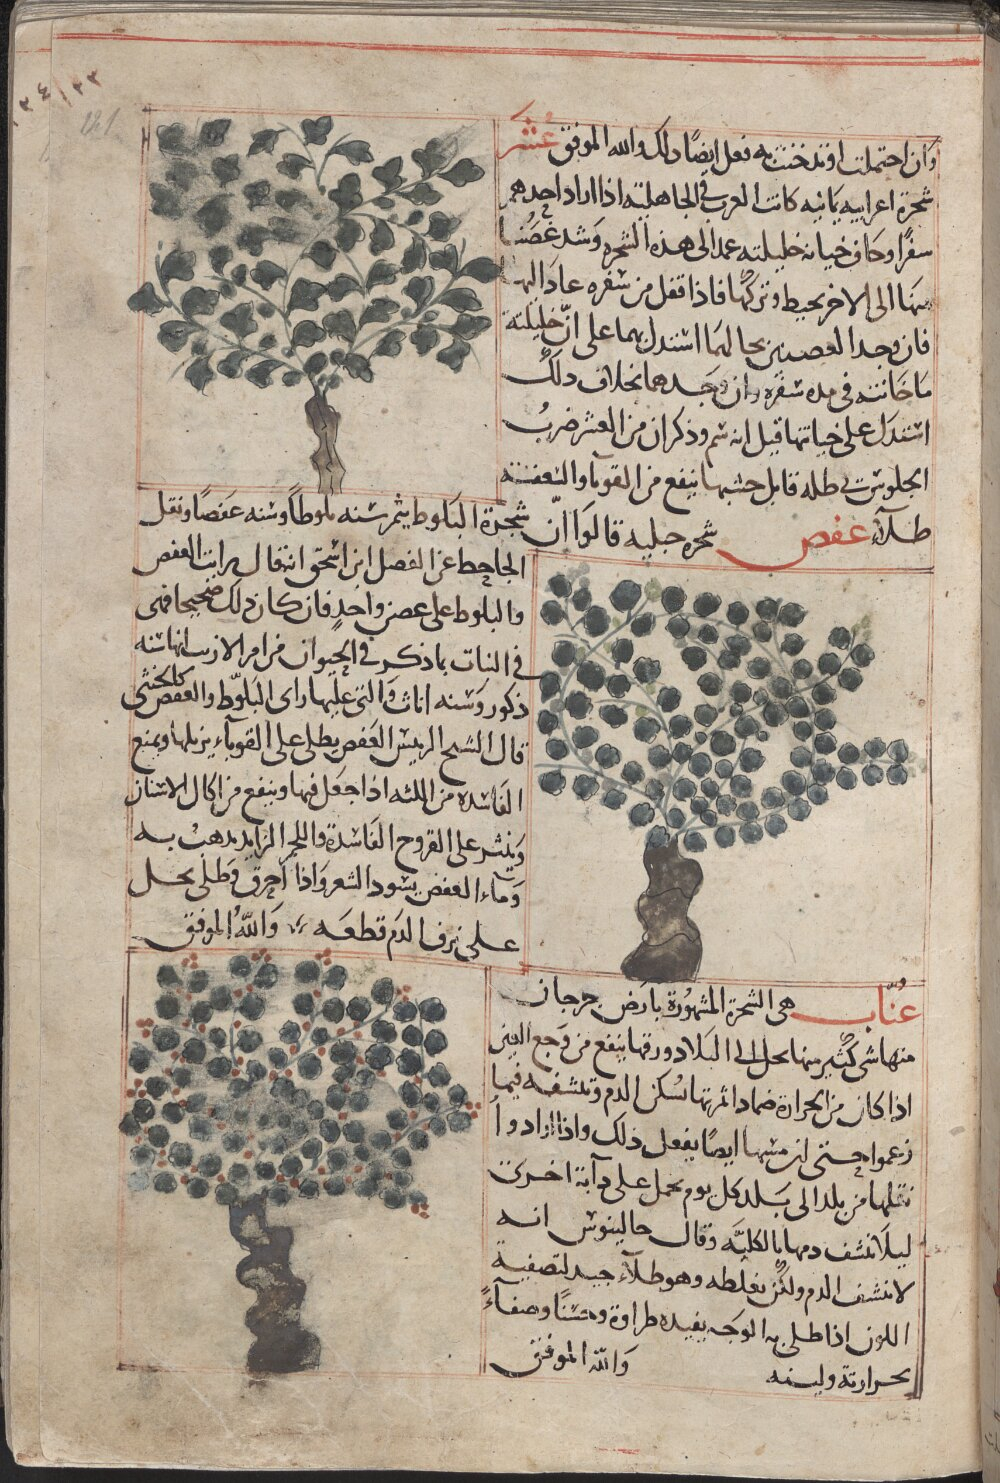 وان احتملت او تدخنت به فعل ايضًا ذلك والله الموفق عشر
شجرة اعرابيه يمانيه كانت العرب في الجاهلية اذا اراد احدهم
سفرًا وخاف خيانه خليلته عمد الى هذه الشجره وشد غصنًا
منها الى الاخر بخيط وتركها فاذا قفل من سفره عاد اليها
فان وجد الغصنين بحالهما استدل بهما على ان خليلته
ما خانته في مده سفره وان وجدهما بخلاف ذلك
استدل على خيانتها قيل انه سم وذكر ان من العشر ضربُ
الجلوس في ظله قاتل خشبها ينفع من القوبا والسعفه
طلآء عفص شجره جبليه قالوا انّ
شجرة البلوط يثمر سنه بلوطًا وسنه عفصًا ونقل
الجاحظ عن الفضل ابن اسحق انه قال رايت العفص
والبلوط على غصن واحدٍ فان كان ذلك صحيحا فهى
فى النبات بما ذكر في الحيوان من امر الارنب انها سنه
ذكور وسنه اناث والتى عليها راى البلوط والعفص كالخنثى
قال الشيخ الرييس العفص يطلى على القوبآء يزيلها ويمنع
الفاسده من اللثه اذا جعل فيها وينفع من اكال الاسنان
وينثر على القروح الفاسدة واللحم الزايد يذهب به
ومآء العفص يسود الشعر واذا احرق وطلى بخل
على نزف الدم قطعه والله الموفق
عنّاب هى الشجرة المشهورة بارض جرجان
منها شى كثير منها يحمل الى البلاد ورقها ينفع من وجع العين
اذا كان من الحرارة ضمادا ثمرتها تسكن الدم وتنشفه فيما
زعموا حتى ان مسها ايضًا يفعل ذلك واذا ارادوا
نقلها من بلد الى بلد كل يوم يحمل على دآبة اخرى
ليلا ينشف دمها بالكليّه وقال جالينوس انه
لا ينشف الدم ولكن يغلظه وهو طلآء جيد لتصفية
اللون اذا طلى به الوجه يفيده طراوة وحسنًا وصفآءً
بحرارته ولينه والله الموفق